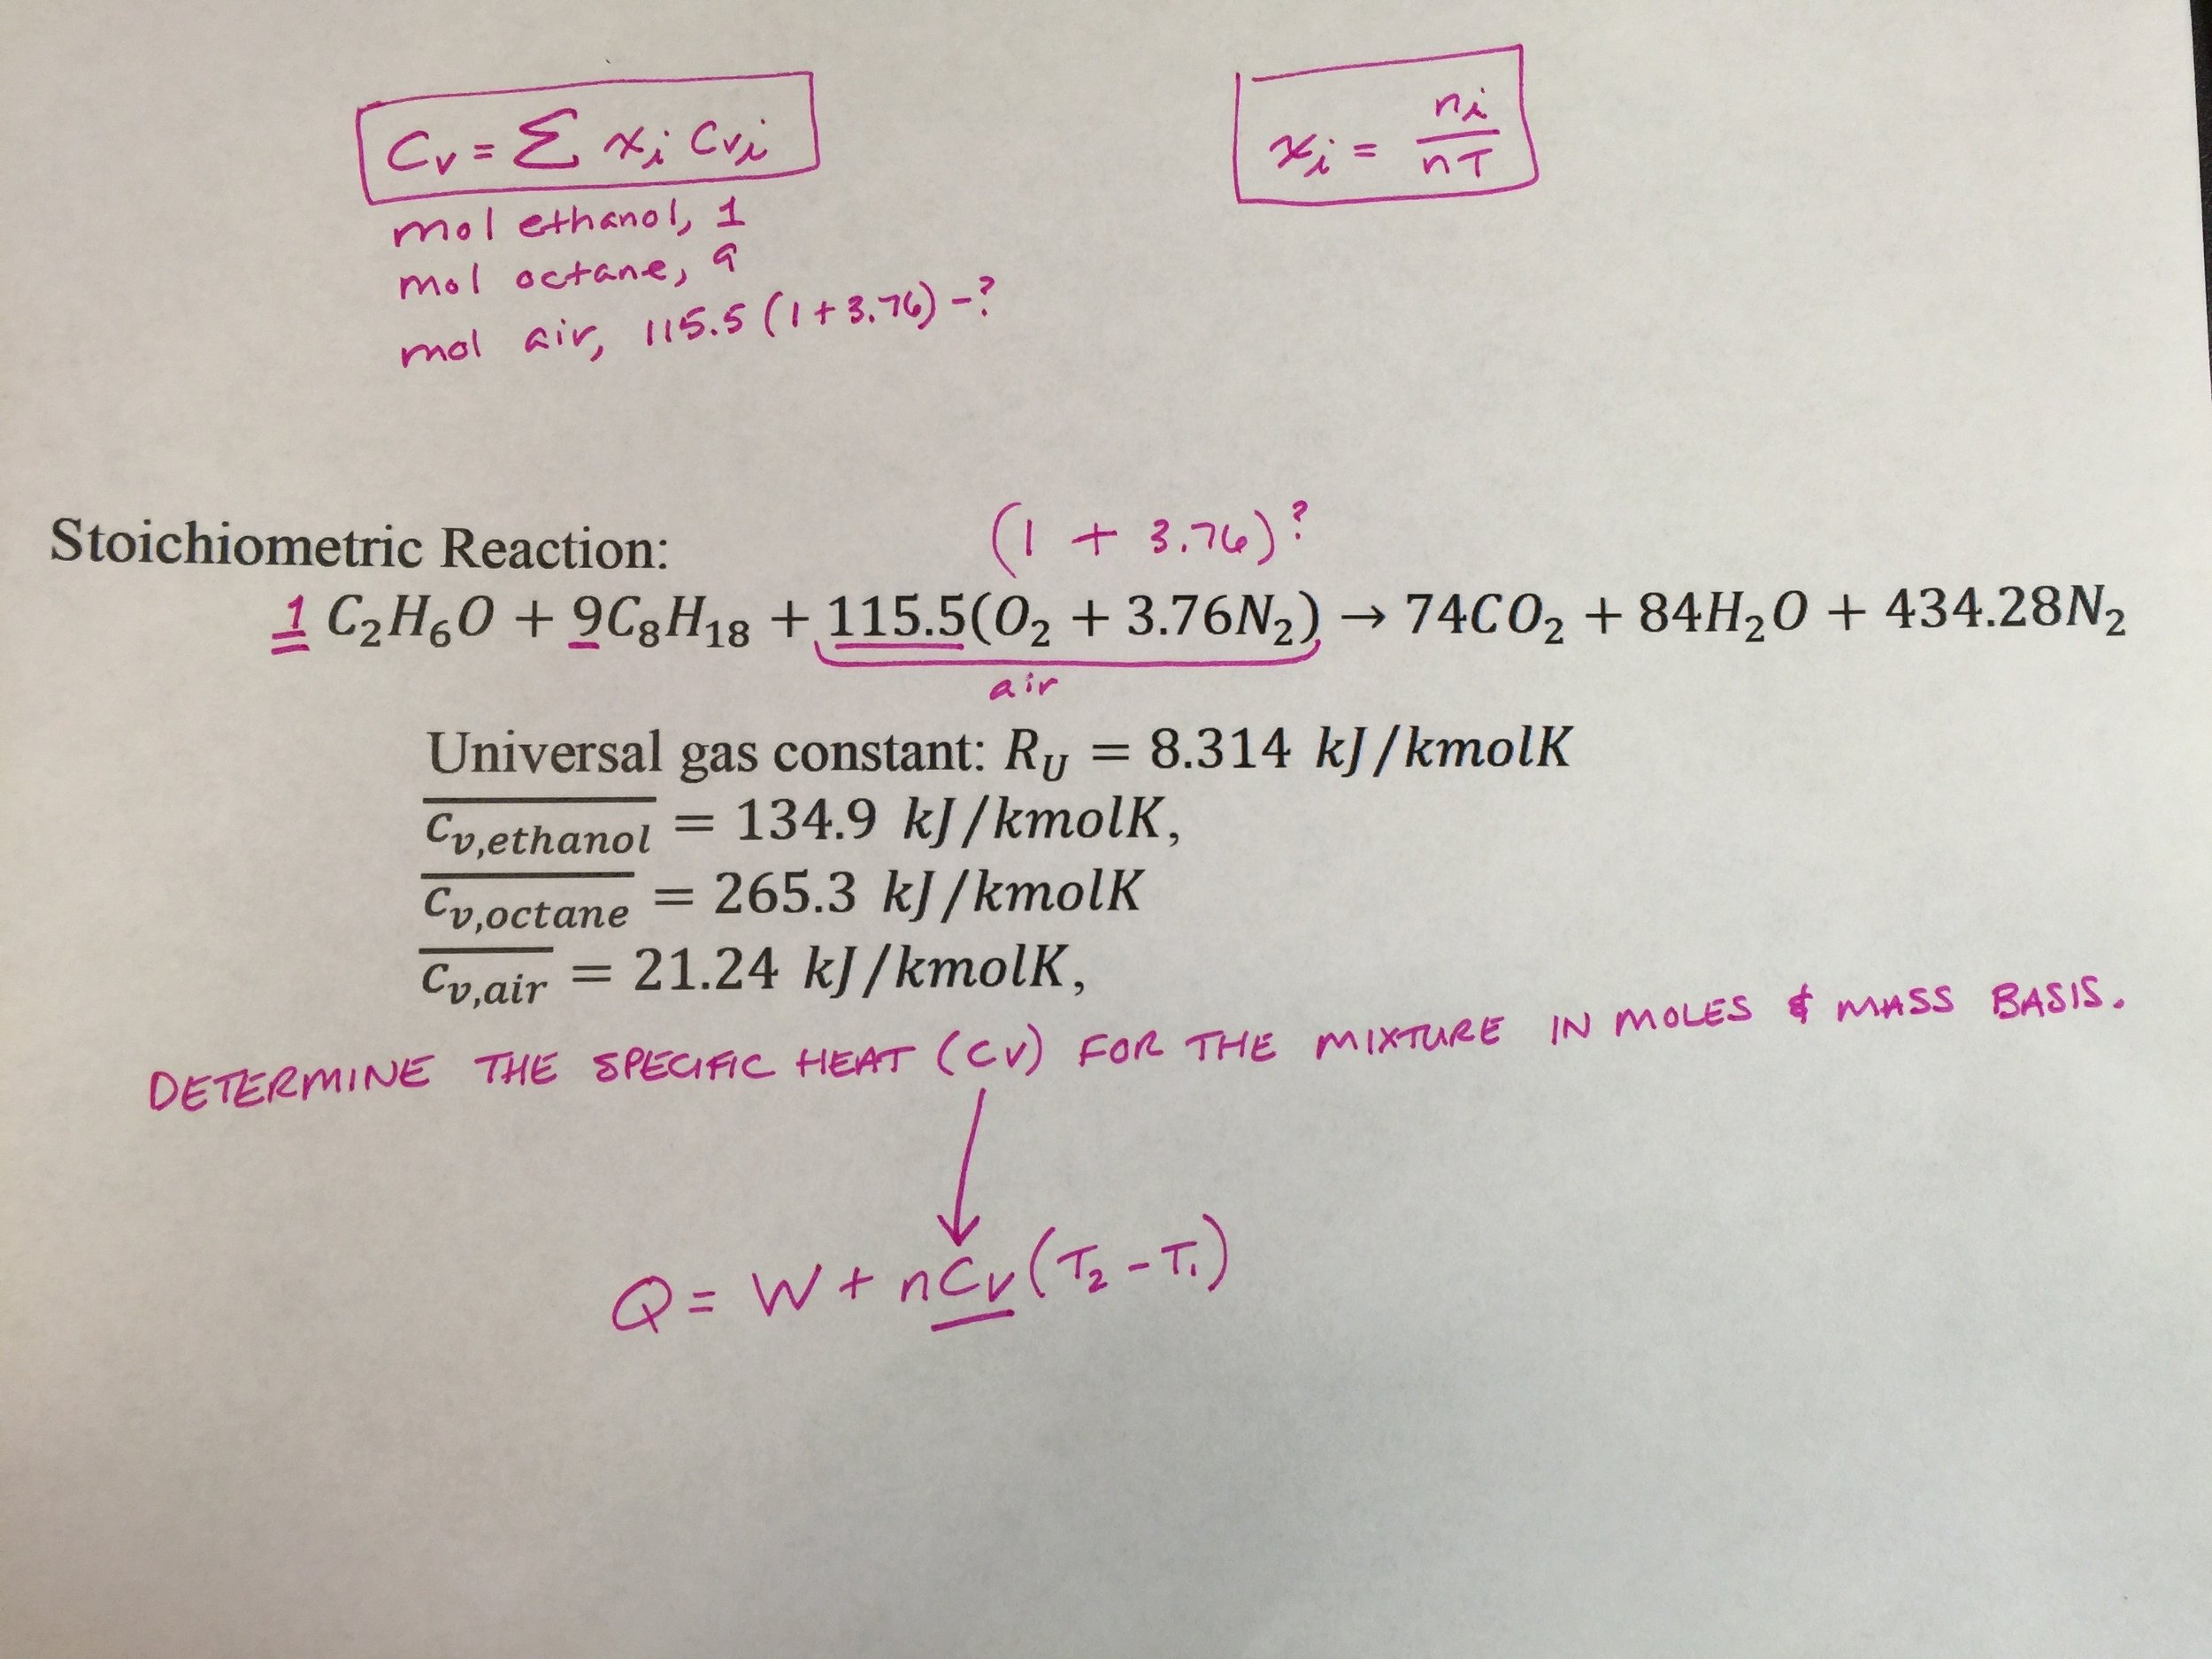 Cv = Σ xi Cvi
xi = ni/nT
mol ethanol, 1
mol octane, 9
mol air, 115.5 (1 + 3.76) - ?
(1 + 3.76)?
Stoichiometric Reaction:
1 C₂H₆O + 9C₈H₁₈ + 115.5(O₂ + 3.76N₂) → 74CO₂ + 84H₂O + 434.28N₂
air
Universal gas constant: R_U = 8.314 kJ/kmolK
c_v,ethanol = 134.9 kJ/kmolK,
c_v,octane = 265.3 kJ/kmolK
c_v,air = 21.24 kJ/kmolK,
DETERMINE THE SPECIFIC HEAT (CV) FOR THE MIXTURE IN MOLES & MASS BASIS.
Q = W + nCv (T₂ - T₁)